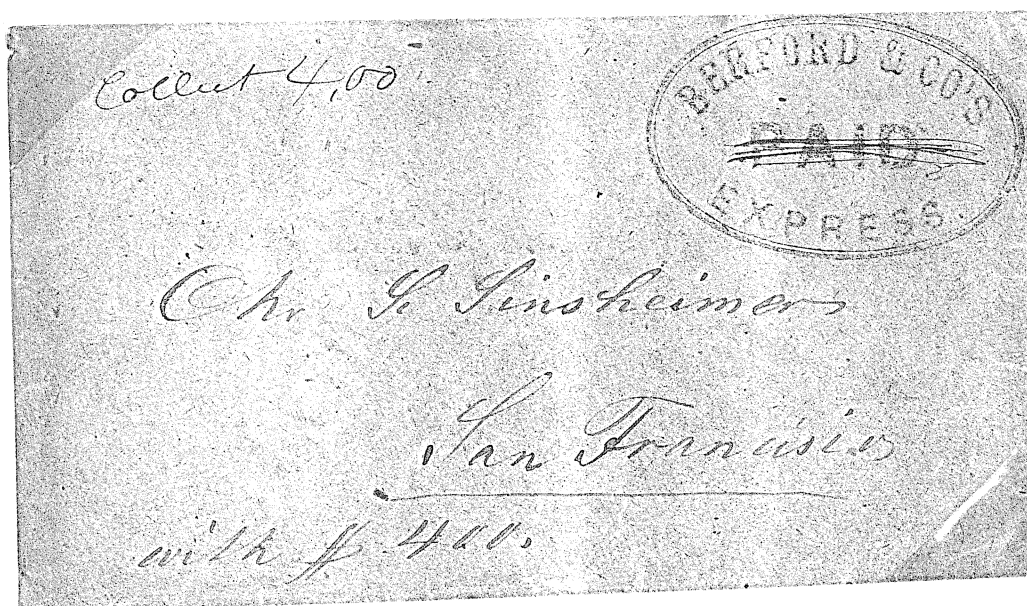 Collect 4,00
BERFORD & CO'S
PAID
EXPRESS.
Chr S. Sinsheimer
San Francisco
with $ 400.